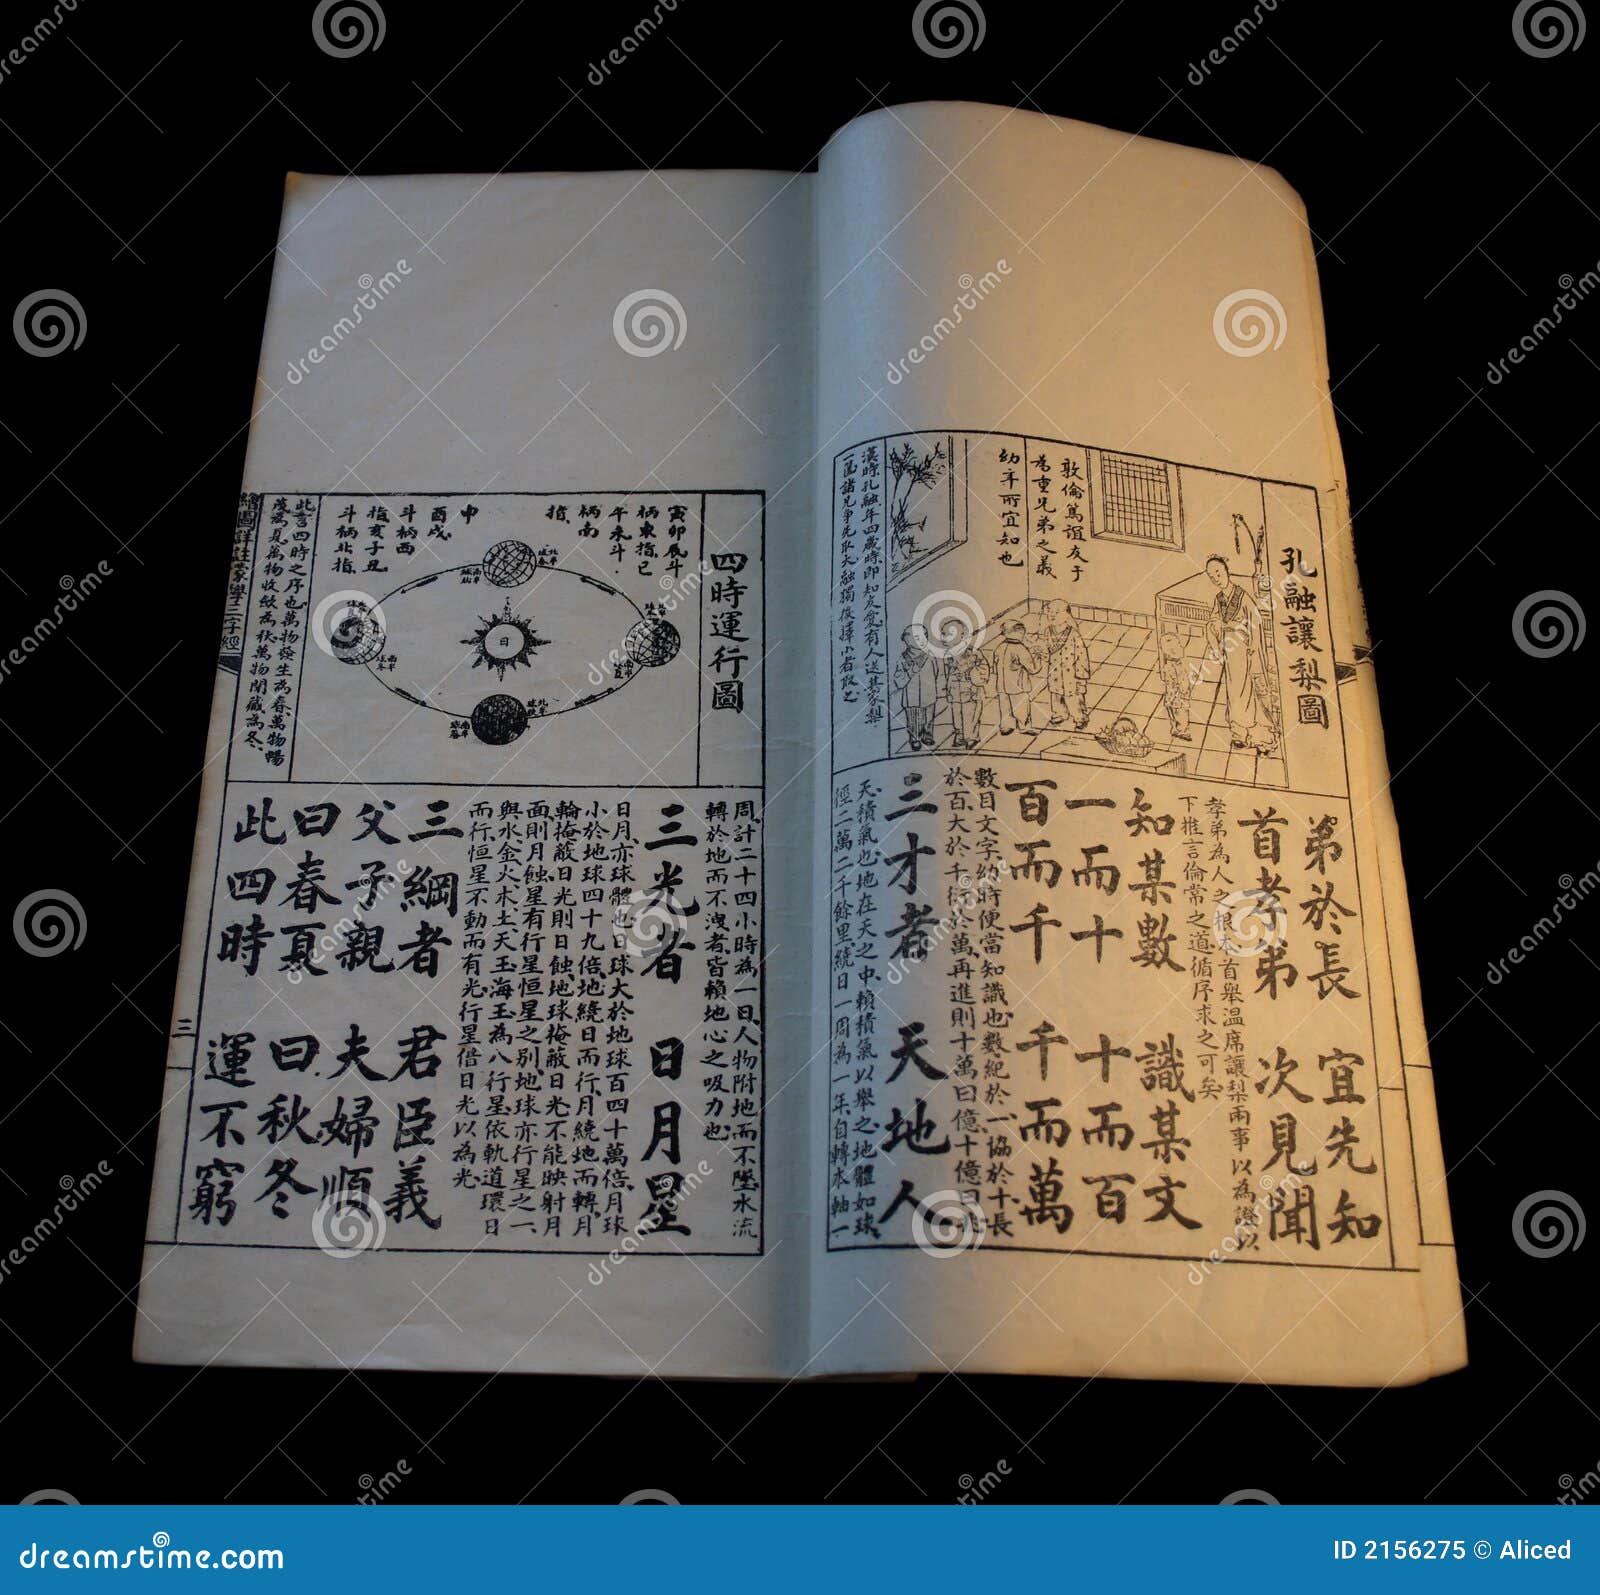 孔融讓梨圖
敦倫篤誼友于
為重兄弟之義
幼年所宜知也
漢時孔融年四歲時即知友愛有人送其家梨
一筐諸兄爭先取大融獨後擇小者取之
弟於長 宜先知
首孝弟 次見聞
孝弟為人之根本首舉溫席讓梨兩事以為證以
下推言倫常之道循序求之可矣
知某數 識某文
一而十 十而百
百而千 千而萬
數目文字幼時便當知識也數紀於一協於十長
於百大於千衍於萬再進則十萬曰億十億曰兆
三才者 天地人
天積氣也地在天之中賴積氣以舉之地體如球
徑二萬二千餘里繞日一周為一年自轉本軸一
四時運行圖
寅卯辰斗
柄東指巳
午未斗
柄南
指
申
酉戌
斗柄西
指亥子丑
斗柄北指
日
此言四時之序也萬物發生為春萬物暢
茂為夏萬物收斂為秋萬物閉藏為冬
周計二十四小時為一日人物附地而不墜水流
轉於地而不洩者皆賴地心之吸力也
三光者 日月星
日月亦球體也日球大於地球百四十萬倍月球
小於地球四十九倍地繞日而行月繞地而轉月
輪掩蔽日光則日蝕地球掩蔽日光不能映射月
面則月蝕星有行星恒星之別地球亦行星之一
與水金火木土天王海王為八行星依軌道環日
而行恒星不動而有光行星借日光以為光
三綱者 君臣義
父子親 夫婦順
曰春夏 曰秋冬
此四時 運不窮
繪圖詳註蒙學三字經
三
dreamstime
dreamstime.com
ID 2156275 © Aliced